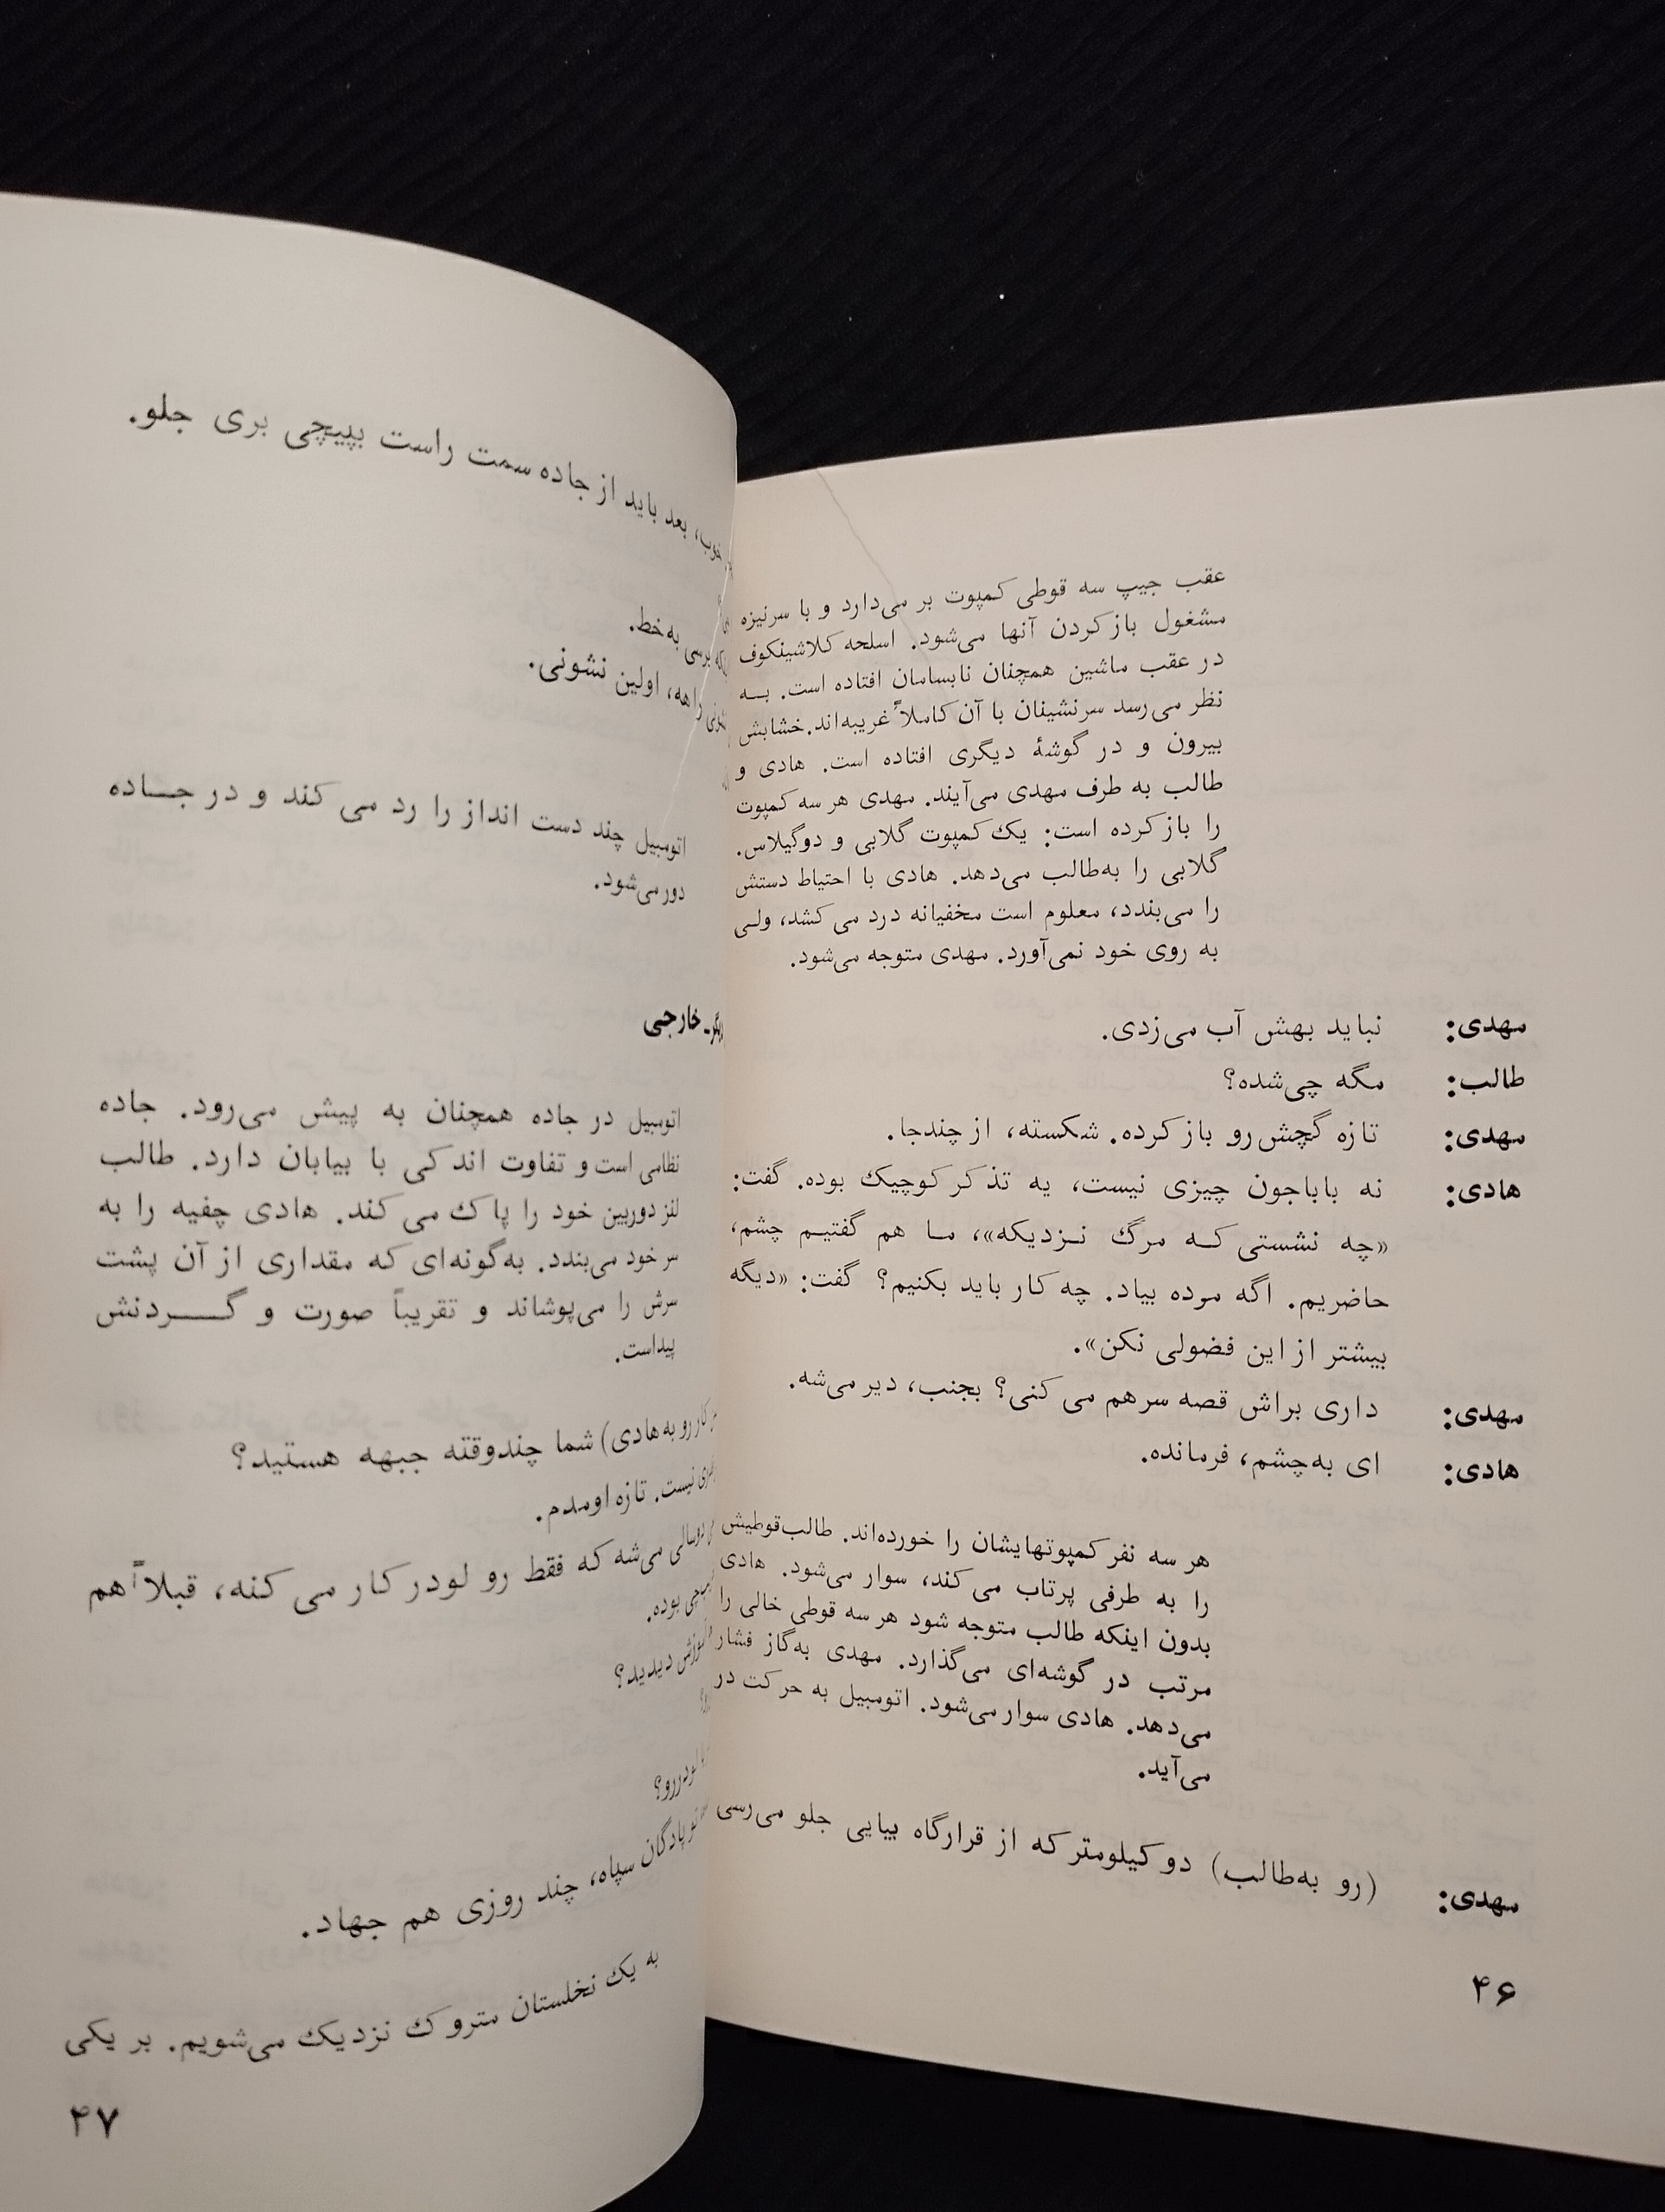 عقب جیپ سه قوطی کمپوت بر می‌دارد و با سرنیزه
مشغول بازکردن آنها می‌شود. اسلحه کلاشینکوف
در عقب ماشین همچنان نابسامان افتاده است. بــه
نظر می‌رسد سرنشینان با آن کاملاً غریبه‌اند. خشابش
بیرون و در گوشهٔ دیگری افتاده است. هادی و
طالب به طرف مهدی می‌آیند. مهدی هر سه کمپوت
را باز کرده است: یک کمپوت گلابی و دوگیلاس.
گلابی را به‌طالب می‌دهد. هادی با احتیاط دستش
را می‌بندد، معلوم است مخفیانه درد می کشد، ولـی
به روی خود نمی‌آورد. مهدی متوجه می‌شود.
مهدی: نباید بهش آب می‌زدی.
طالب: مگه چی‌شده؟
مهدی: تازه گچش‌رو باز کرده. شکسته، از چندجا.
هادی: نه باباجون چیزی نیست، یه تذکر کوچیک بوده. گفت:
«چه نشستی کــه مرگ نــزدیکه»، مــا هم گفتیـم چشم،
حاضریم. اگه موده بیاد. چه کار باید بکنیم؟ گفت: «دیگه
بیشتر از این فضولی نکن».
مهدی: داری براش قصه سرهم می کنی؟ بجنب، دیر می‌شه.
هادی: ای به‌چشم، فرمانده.
هر سه نفر کمپوتهایشان را خورده‌اند. طالب‌قوطیش
را به طرفی پرتاب می کند، سوار می‌شود. هادی
بدون اینکه طالب متوجه شود هر سه قوطی خالی را
مرتب در گوشه‌ای می‌گذارد. مهدی به‌گاز فشار
می‌دهد. هادی سوار می‌شود. اتومبیل به حرکت در
می‌آید.
مهدی: (رو به‌طالب) دو کیلومتر که از قرارگاه بیایی جلو می‌رسی
۴۶
خوب، بعد باید از جاده سمت راست بپیچی بری جلو.
برسی به‌خط.
راهه، اولین نشونی.
اتومبیل چند دست انداز را رد می کند و در جــاده
دور می‌شود.
خارجی
اتومبیل در جاده همچنان به پیش می‌رود. جاده
نظامی است و تفاوت اندکی با بیابان دارد. طالب
لنز دوربین خود را پاک می کند. هادی چفیه را به
سر خود می‌بندد. به‌گونه‌ای که مقداری از آن پشت
سرش را می‌پوشاند و تقریباً صورت و گــــردنش
پیداست.
رو به هادی) شما چندوقته جبهه هستید؟
نیست. تازه اومدم.
دوسالی می‌شه که فقط رو لودر کار می کنه، قبلاً هم
بوده.
آموزش دیدید؟
لودررو؟
تو پادگان سپاه، چند روزی هم جهاد.
به یک نخلستان متروک نزدیک می‌شویم. بر یکی
۴۷